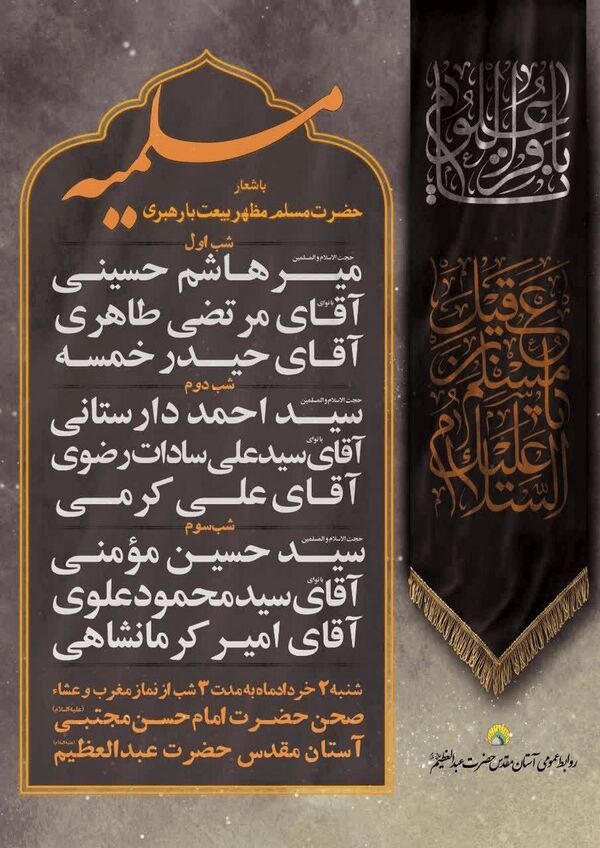 مسلمیه
با شعار
حضرت مسلم مظهر بیعت با رهبری
شب اول
حجت الاسلام والمسلمین
میر هاشم حسینی
با نوای
آقای مرتضی طاهری
آقای حیدر خمسه
شب دوم
حجت الاسلام والمسلمین
سید احمد دارستانی
با نوای
آقای سید علی سادات رضوی
آقای علی کرمی
شب سوم
حجت الاسلام والمسلمین
سید حسین مؤمنی
با نوای
آقای سید محمود علوی
آقای امیر کرمانشاهی
شنبه ۲ خردادماه به مدت ۳ شب از نماز مغرب و عشاء
صحن حضرت امام حسن مجتبی (علیه السلام)
آستان مقدس حضرت عبدالعظیم (علیه السلام)
یا باقر العلوم
السلام علیک یا مسلم بن عقیل
روابط عمومی آستان مقدس حضرت عبدالعظیم